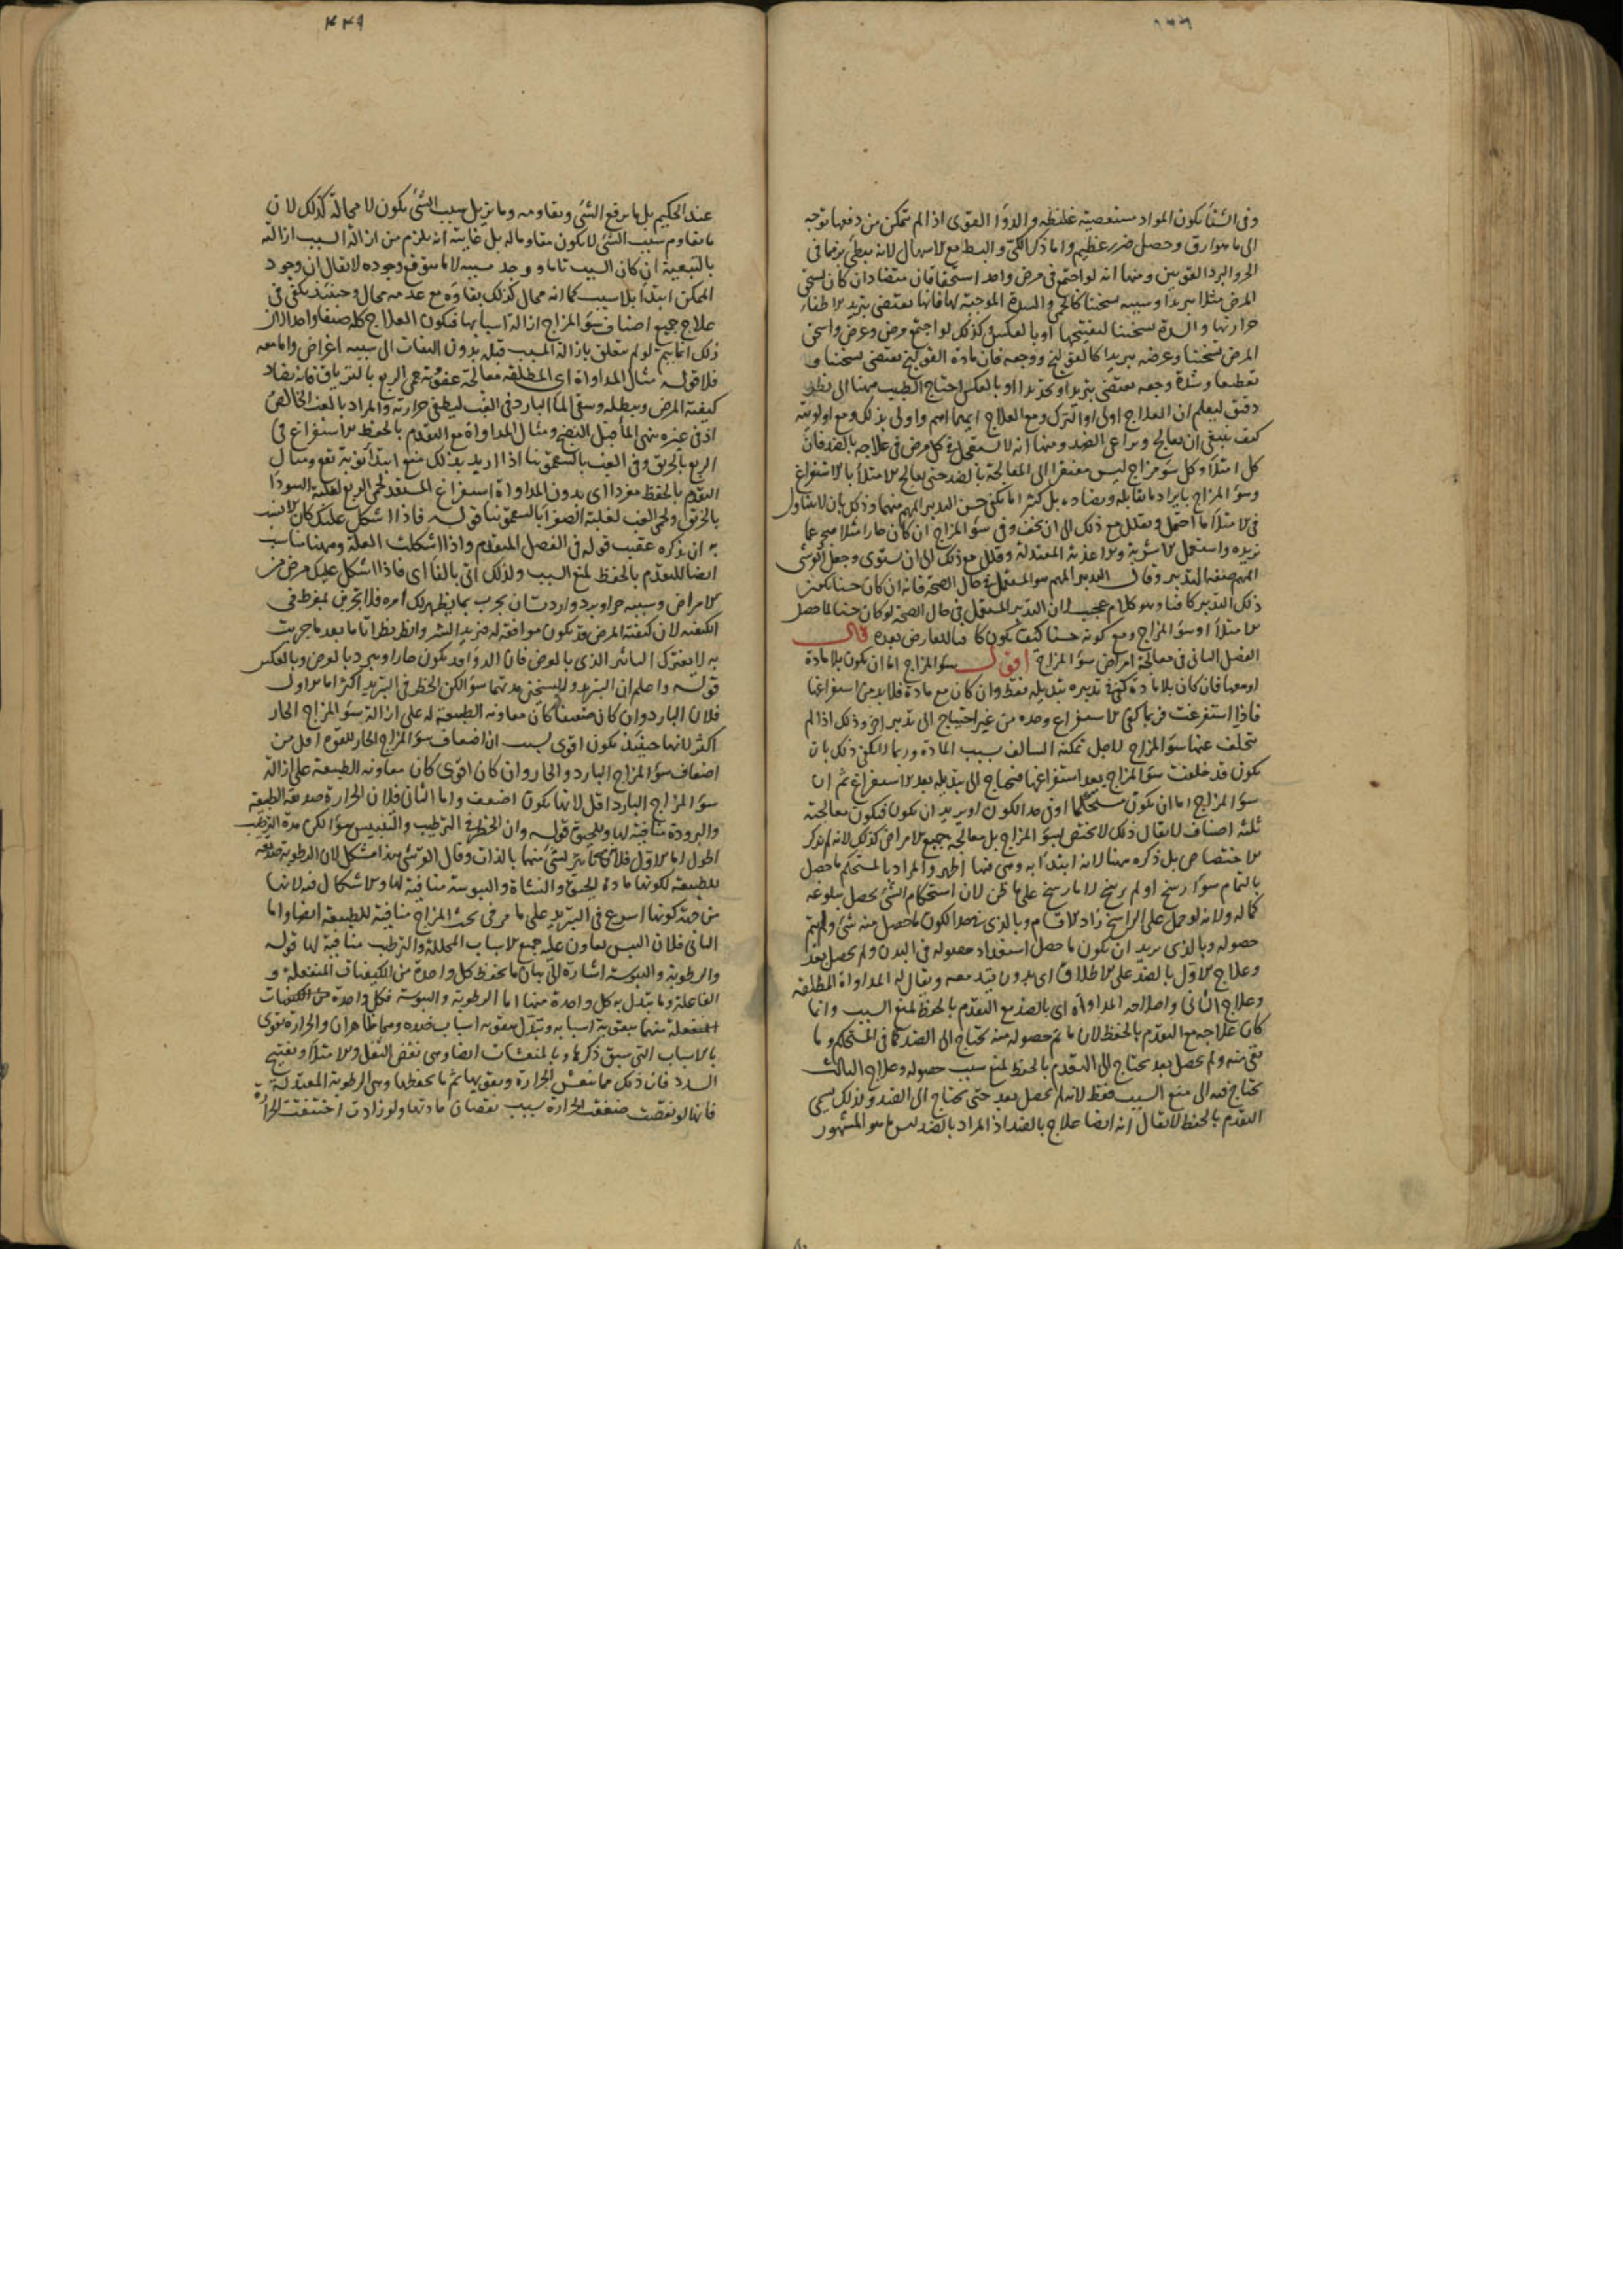 وفى الشتاء يكون المواد مستعصية غليظة والدواء القوى اذا لم يتمكن من دفعها توجه
الى ما هو ارق وحصل ضرر عظيم واما ذكر الكى والبط مع الاسهال لانه
الحر والبرد القويين ومنها انه لو اجتمع فى مرض واحد استحقاقان متضادان كان يستحق
المرض مثلا تبريدا وسببه تسخينا كالحمى والسدة الموجبة لها فانها تقتضى بتبريد الاطفاء
حرارتها والسدة تسخينا لتفتيحها او بالعكس وكذلك لو اجتمع مرض وعرض واستحق
المرض تسخينا وعرضه تبريدا كالقولنج ووجعه فان مادة القولنج تقتضى تسخينا و
تقطيعا وشدة وجعه تقتضى تبريدا وتخديرا او بالعكس احتاج الطبيب ههنا الى نظر
دقيق ليعلم ان العلاج اولى او الترك ومع العلاج ايهما اهم واولى بذلك ومع اولويته
كيف ينبغى ان يعالج ويراعى الضد ومنها انه لا يستعجل فى كل مرض فى علاجه بالضد فان
كل امتلاء وكل سوء مزاج ليس مفتقرا الى المعالجة بالضد حتى يعالج الامتلاء بالاستفراغ
وسوء المزاج بايراد ما يقابله ويضاده بل كثيرا ما يكفى حسن التدبير المهم منهما وذلك بان لا يتناول
فى الامتلاء ما احتمل ويقلل مع ذلك الى ان يخف وفى سوء المزاج ان كان حارا مثلا عما
يزيده واستعمل الاشربة والاغذية المعتدلة وقلل مع ذلك الى ان يستوى وجعل القرشى
المهم صفة التدبير وقال التدبير المهم هو المستعمل فى حال الصحة فانه ان كان حسنا
ذلك التدبير كافيا وهو كلام عجيب لان التدبير المستعمل فى حال الصحة لو كان حسنا لما حصل
الامتلاء او سوء المزاج ومع كونه حسنا كيف يكون كافيا للعارض بعده قال
الفصل الثانى فى معالجة امراض سوء المزاج اقول سوء المزاج اما ان يكون بلا مادة
او معها فان كان بلا مادة كفى فى تدبيره تبديله فقط وان كان مع مادة فلا بد من استفراغها
فاذا استفرغت فربما كفى الاستفراغ وحده من غير احتياج الى تدبير اخر وذلك اذا لم
يتخلف عنها سوء المزاج لاجل تمكنه السالف بسبب المادة وربما لا يكفى ذلك بان
يكون قد خلفت سوء المزاج بعد استفراغها فيحتاج الى تبديله بعد الاستفراغ ثم ان
سوء المزاج اما ان يكون مستحكما او فى حد الكون او يريد ان يكون فيكون معالجته
ثلثة اصناف لا يقال ذلك لا يختص بسوء المزاج بل معالجة جميع الامراض كذلك لانه لم يذكر
الاختصاص بل ذكره ههنا لانه ابتدأ به وهى فيها اظهر والمراد بالمستحكم ما حصل
بالتمام سواء رسخ او لم يرسخ لا ما رسخ على ما ظن لان استحكام الشئ يحصل ببلوغه
كماله ولانه لو حمل على الراسخ زاد الاقسام وبالذى فى حد الكون ما حصل منه شئ ولم يتم
حصوله وبالذى يريد ان يكون ما حصل استعداد حصوله فى البدن ولم يحصل بعد
وعلاج الاول بالضد على الاطلاق اى بدون قيد معه ويقال له المداواة المطلقة
وعلاج الثانى واصلاحه المداواة اى بالضد مع التقدم بالحفظ لمنع السبب وانما
كان علاجه مع التقدم بالحفظ لان ما تم حصوله منه يحتاج الى الضد كما فى المستحكم وما
بقى منه ولم يحصل بعد يحتاج الى التقدم بالحفظ لمنع سبب حصوله وعلاج الثالث
يحتاج فيه الى منع السبب فقط لانه لم يحصل بعد حتى يحتاج الى الضد ولذلك يسمى
التقدم بالحفظ لا يقال انه ايضا علاج بالضد اذ المراد بالضد ليس ما هو المشهور
٤٤٩
عند الحكيم بل ما يرفع الشئ ويقاومه وما يزيل سبب الشئ يكون لا محالة كذلك لان
ما يقاوم سبب الشئ لا يكون مقاوما له بل غايته انه يلزم من ازالة السبب ازالته
بالتبعية ان كان السبب تاما ووجد مسببه لا ما يتوقع وجوده لا يقال ان وجود
الممكن ابتداء بلا سبب كما انه محال كذلك بقاؤه مع عدمه محال وحينئذ يكفى فى
علاج جميع اصناف سوء المزاج ازالة اسبابها فيكون العلاج كله صنفا واحدا لان
ذلك انما يتم لو لم يتعلق بازالة المسبب قبله بدون التفات الى سببه اغراض واما معه
فلا قوله مثال المداواة اى المطلقة معالجة عفونة حمى الربع بالترياق فانه يضاد
كيفية المرض ويبطله وسقى الماء البارد فى الغب ليطفى حرارته والمراد بالغب الخالص
اذ فى غيره ينهى الماء قبل النضج ومثال المداواة مع التقدم بالحفظ الاستفراغ فى
الربع بالخربق وفى الغب بالسقمونيا اذا اريد بذلك منع ابتداء نوبة تقع ومثال
التقدم بالحفظ مفردا اى بدون المداواة استفراغ المستعد لحمى الربع لغلبة السوداء
بالخربق ولحمى الغب لغلبة الصفراء بالسقمونيا قوله فاذا اشكل عليك كان الانسب
به ان يذكره عقيب قوله فى الفصل المتقدم واذا اشكلت العلة وههنا مناسب
ايضا للتقدم بالحفظ لمنع السبب ولذلك اتى بالفاء اى فاذا اشكل عليك مرض من
الامراض وسببه حر او برد واردت ان تجرب بما يظهر لك امره فلا تجربن بمفرط فى
الكيفية لان كيفية المرض قد يكون موافقة له فيزيد الشر وانظر نظرا تاما بعد ما جربت
به لا يغترك التاثير الذى بالعرض فان الدواء قد يكون حارا ويبرد بالعرض وبالعكس
قوله واعلم ان التبريد والتسخين مدتهما سواء لكن الخطر فى التبريد اكثر اما الاول
فلان البارد وان كان ضعيفا كان معاونة الطبيعة له على ازالة سوء المزاج الحار
اكثر لانها حينئذ يكون اقوى بسبب ان اضعاف سوء المزاج الحار للقوى اقل من
اضعاف سوء المزاج البارد والحار وان كان اقوى كان معاونة الطبيعة على ازالة
سوء المزاج البارد اقل لانها يكون اضعف واما الثانى فلان الحرارة صديقة الطبيعة
والبرودة منافية لها وللحيوة قوله وان الخطر فى الترطيب والتيبيس سواء لكن مدة الترطيب
اطول اما الاول فلان بشئ منهما بالذات وقال القرشى هذا مشكل لان الرطوبة صديقة
للطبيعة لكونها مادة للحيوة والنشاة واليبوسة منافية لها والاشكال فيه لانها
من جهة كونها اسرع فى التبريد على ما مر فى بحث المزاج منافية للطبيعة ايضا واما
الثانى فلان اليبس يعاون عليه جميع الاسباب المحللة والترطيب منافية لها قوله
والرطوبة واليبوسة اشارة الى بيان ما يحفظ كل واحدة من الكيفيات المنفعلة و
الفاعلة وما يتبدل به كل واحدة منهما اما الرطوبة واليبوسة فكل واحدة من الكيفيات
المنفعلة منهما يتقوى بتقوية اسبابه ويتبدل بتقوية اسباب ضده وهما ظاهران والحرارة تقوى
بالاسباب التى سبق ذكرها وبالمنعشات ايضا وهى نفض الثفل والامتلاء وتفتيح
السدد فان ذلك مما ينعش الحرارة ويقويها ثم ما يحفظها وهى الرطوبة المعتدلة
فانها لو نقصت ضعفت الحرارة بسبب نقصان مادتها ولو زادت اختنقت الحرارة